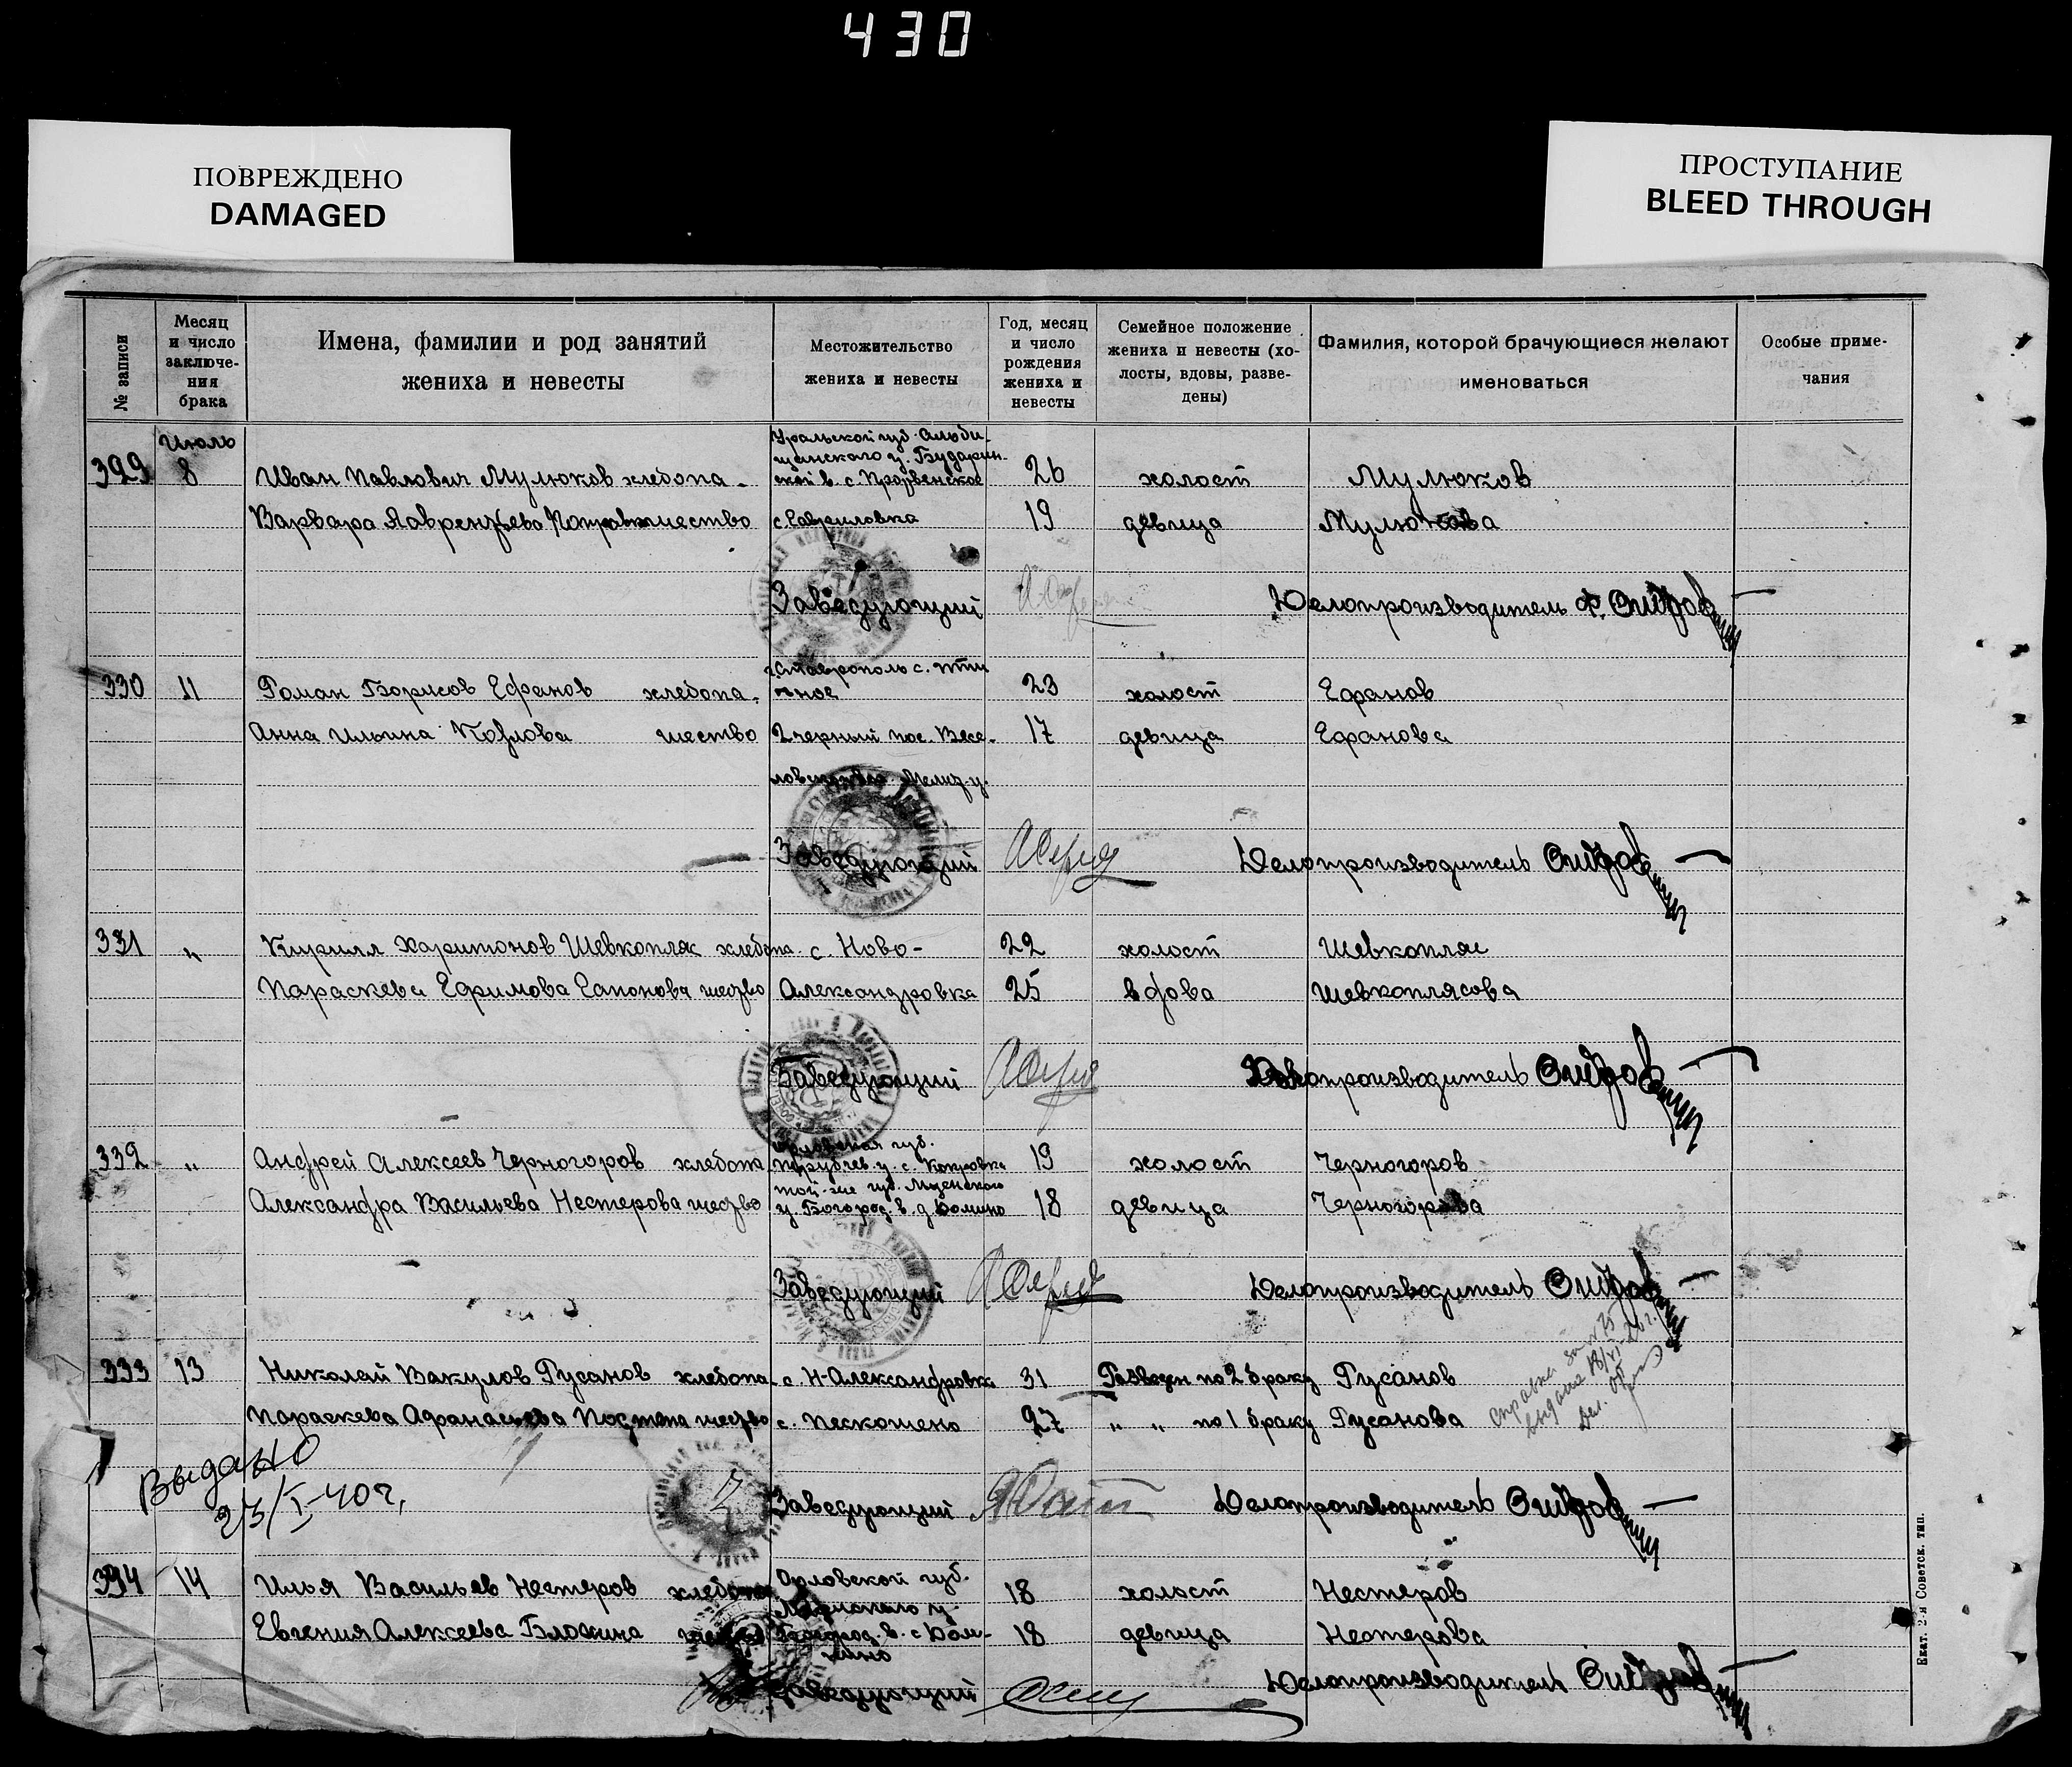 430
ПОВРЕЖДЕНО
DAMAGED
ПРОСТУПАНИЕ
BLEED THROUGH
№ записи
Месяц и число заключе-ния брака
Имена, фамилии и род занятий жениха и невесты
Местожительство жениха и невесты
Год, месяц и число рождения жениха и невесты
Семейное положение жениха и невесты (хо-лосты, вдовы, разве-дены)
Фамилия, которой брачующиеся желают именоваться
Особые приме-чания
Июль
Уральской губ.
329 8 Иван Павлович Мулюков хлебопа- 26 холост Мулюков
Варвара Лаврентьева шество с. Гавриловка 19 девица Мулюкова
Заведующий Делопроизводитель
г. Ставрополь с.
330 11 Роман Борисов Ефанов хлебопа- 23 холост Ефанов
Анна Ильина Козлова шество 2 черный пос. Весе- 17 девица Ефанова
Заведующий Делопроизводитель
331 " Кирилл Харитонов Шевкопляс хлебопа- с. Ново- 22 холост Шевкопляс
Параскева Ефимова Сапонова шество Александровка 25 вдова Шевкоплясова
Заведующий Делопроизводитель
Орловская губ.
332 " Андрей Алексеев Черногоров хлебопа 19 холост Черногоров
той-же губ. Мценского
Александра Васильева Нестерова шество у. Богород. в. д. Домино 18 девица Черногорова
Заведующий Делопроизводитель
333 13 Николай Вакулов Русанов хлебопа- с. Н-Александровка 31 Разведен по 2 браку Русанов
Параскева Афанасьева шество с. Песхошено 27 " " по 1 браку Русанова
Справка за № 75
выдана
Выдано
23/I-40 г.
Заведующий Делопроизводитель
334 14 Илья Васильев Нестеров хлебопа Орловской губ. 18 холост Нестеров
Евгения Алексеева Блохина Богород. в. с Дом- 18 девица Нестерова
ино
Заведующий Делопроизводитель
Екат. 2-я Советск. тип.